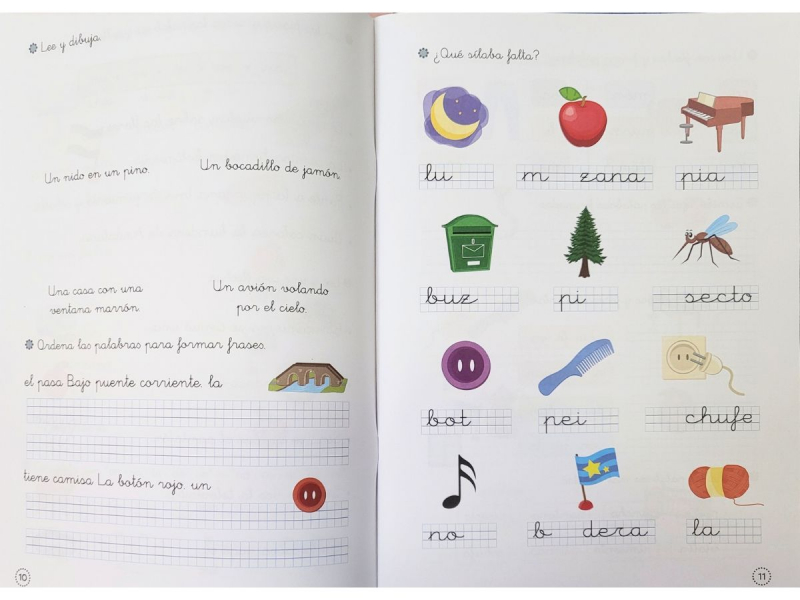 Lee y dibuja.
Un nido en un pino.
Un bocadillo de jamón.
Una casa con una
ventana marrón.
Un avión volando
por el cielo.
Ordena las palabras para formar frases.
el pasa Bajo puente corriente. la
tiene camisa La botón rojo. un
10
¿Qué sílaba falta?
lu
m zana
pia
buz
pi
secto
bot
pei
chufe
no
b dera
la
11